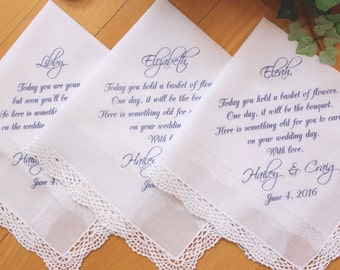 Libby,
Today you are young
but soon you'll be
So here is something old
on the wedding
Hailey
June 4,
Elizabeth,
Today you hold a basket of flowers
One day, it will be the bouquet.
Here is something old for you to
on your wedding day.
With love,
Hailey
Eleah,
Today you hold a basket of flowers.
One day, it will be the bouquet.
Here is something old for you to carry
on your wedding day.
With love,
Hailey & Craig
June 4, 2016